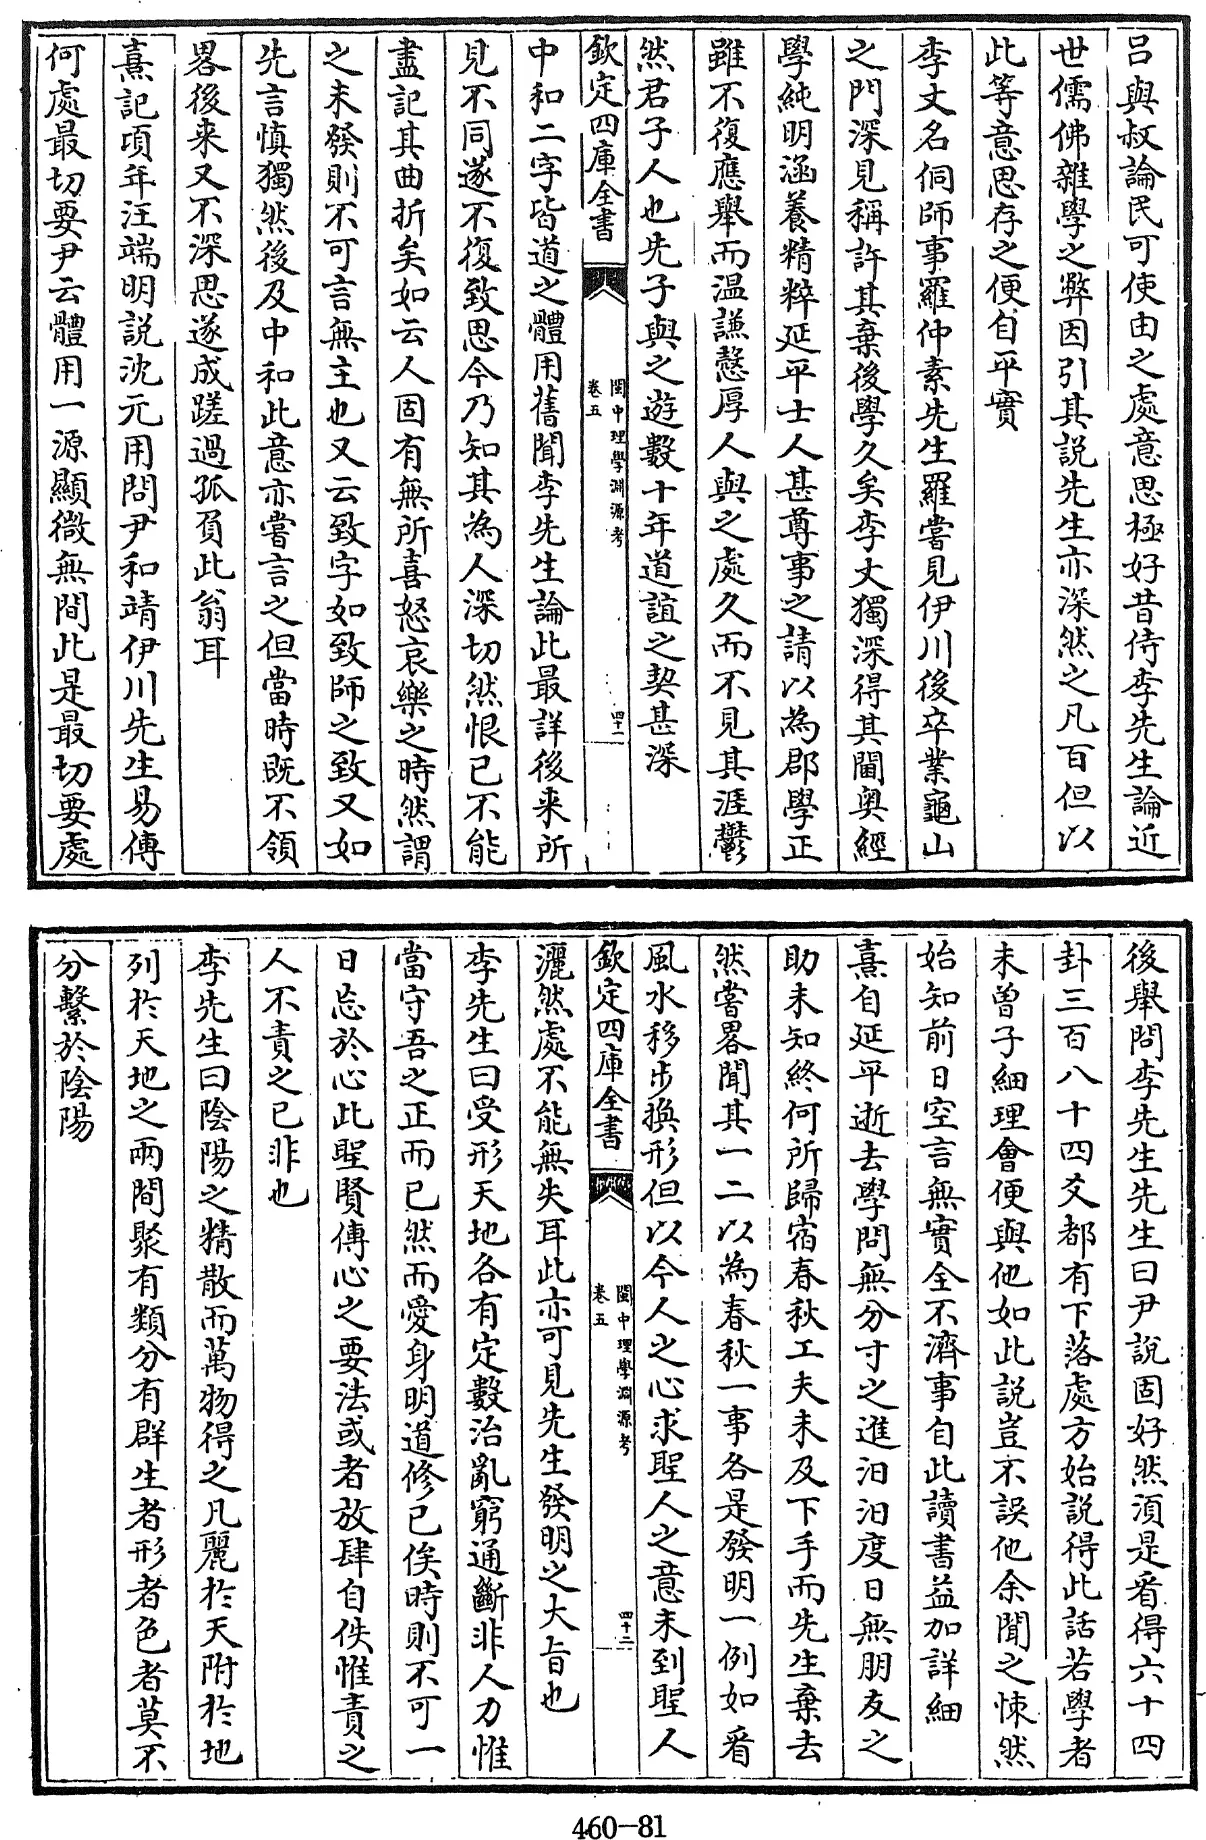 呂與叔論民可使由之處意思極好昔侍李先生論近
世儒佛雜學之弊因引其説先生亦深然之凡百但以
此等意思存之便自平實
李丈名侗師事羅仲素先生羅嘗見伊川後卒業龜山
之門深見稱許其棄後學久矣李丈獨深得其閫奥經
學純明涵養精粹延平士人甚尊事之請以為郡學正
雖不復應舉而温謙慤厚人與之處久而不見其涯鬱
然君子人也先子與之遊數十年道誼之契甚深
欽定四庫全書
閩中理學淵源考
卷五
四十一
中和二字皆道之體用舊聞李先生論此最詳後来所
見不同遂不復致思今乃知其為人深切然恨已不能
盡記其曲折矣如云人固有無所喜怒哀樂之時然謂
之未發則不可言無主也又云致字如致師之致又如
先言慎獨然後及中和此意亦嘗言之但當時既不領
畧後来又不深思遂成蹉過孤負此翁耳
熹記頃年汪端明説沈元用問尹和靖伊川先生易傳
何處最切要尹云體用一源顯微無間此是最切要處
後舉問李先生先生曰尹説固好然須是看得六十四
卦三百八十四爻都有下落處方始説得此話若學者
未曾子細理會便與他如此説豈不誤他余聞之悚然
始知前日空言無實全不濟事自此讀書益加詳細
熹自延平逝去學問無分寸之進汨汨度日無朋友之
助未知終何所歸宿春秋工夫未及下手而先生棄去
然嘗畧聞其一二以為春秋一事各是發明一例如看
風水移步換形但以今人之心求聖人之意未到聖人
欽定四庫全書
閩中理學淵源考
卷五
四十二
灑然處不能無失耳此亦可見先生發明之大旨也
李先生曰受形天地各有定數治亂窮通斷非人力惟
當守吾之正而已然而愛身明道修已俟時則不可一
日忘於心此聖賢傳心之要法或者放肆自佚惟責之
人不責之已非也
李先生曰陰陽之精散而萬物得之凡麗於天附於地
列於天地之兩間聚有類分有群生者形者色者莫不
分繫於陰陽
460-81